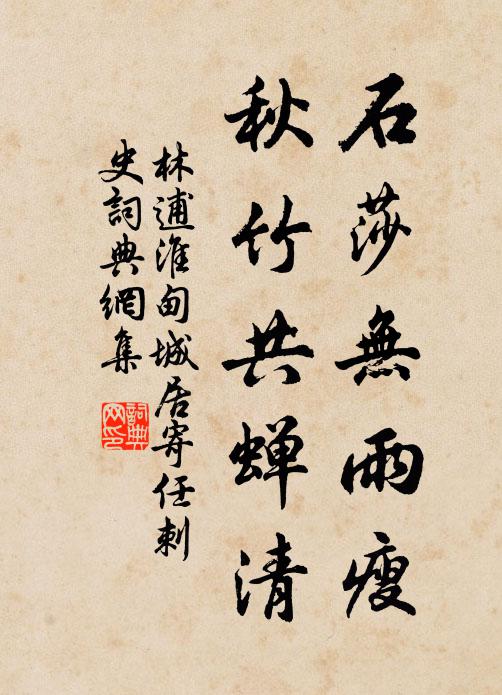 石莎無雨瘦
秋竹共蟬清
林逋淮甸城居寄任刺
史詞典網集
詞典
网印